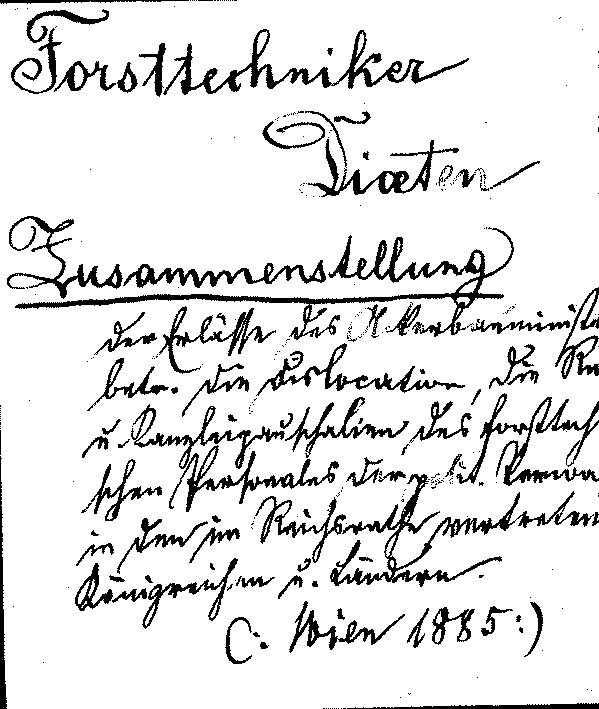 Forsttechniker
Diæten
Zusammenstellung
der Erlässe des Ackerbauminista
betr. die Dislocation, die Re
u. Kanzleipauschalien des forsttech
schen Personales der polit. Verwa
in den im Reichsrathe vertreten
Königreichen u. Ländern.
(: Wien 1885 :)